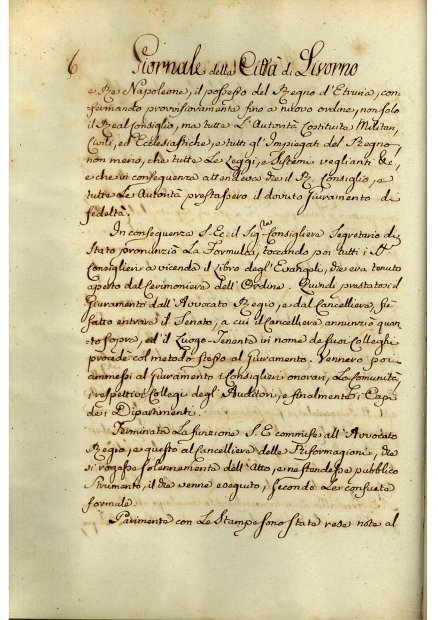 6 Giornale della Città di Livorno
e Re Napoleone, il possesso del Regno d'Etruria, con-
fermando provvisoriamente fino a nuovo ordine, non solo
il Real Consiglio, ma tutte L'Autorità Costituite Militari,
Civili, ed Ecclesiastiche, e tutti gl'Impiegati del Regno,
non meno, che tutte Le Leggi, e Sistemi veglianti &c,
e che in conseguenza attendeva che il R. Consiglio, e
tutte Le Autorità prestassero il dovuto Giuramento di
fedeltà.
In conseguenza S. E. il Sig.re Consigliere Segretario di
Stato pronunziò La Formula, toccando poi tutti i SS.
Consiglieri a vicenda il Libro degl'Evangeli, che era tenuto
aperto dal Cerimoniere dell'Ordine. Quindi prestato il
Giuramento dall'Avvocato Regio, e dal Cancelliere, fu
fatto entrare il Senato, a cui il Cancelliere annunziò quan
to sopra, ed il Luogo-Tenente in nome de suoi Colleghi
procedè col metodo stesso al Giuramento. Vennero poi
ammessi al Giuramento i Consiglieri onorari, La Comunità,
i respettivi Collegi degl'Auditori, e finalmente i Capi
dei Dipartimenti.
Terminata La funzione S. E. commise all'Avvocato
Regio, e questo al Cancelliere delle Riformagioni, che
si rogasse solennemente dell'Atto, e ne stendesse pubblico
Strumento, il che venne eseguito, secondo Le consuete
formule.
Parimente con Le Stampe sono state rese note al